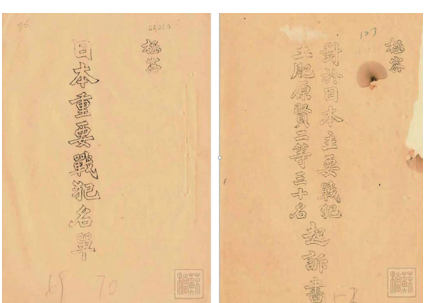 極密
日本重要戰犯名單
69 70
123
極密
對於日本主要戰犯
土肥原賢二等三十名
起訴書